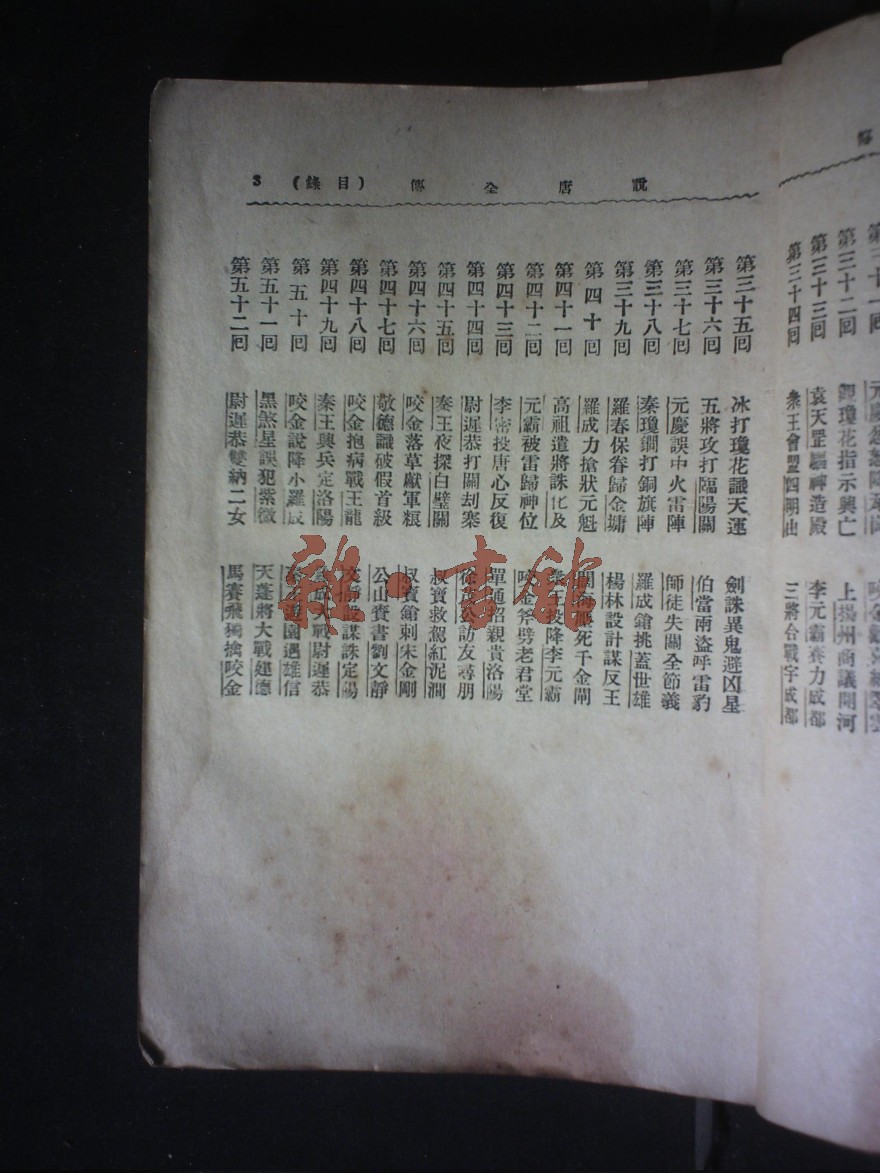 說唐全傳（目錄）3
第三十二回　鋤瓊花指示興亡　上揚州商議開河
第三十三回　袁天罡驅神造殿　李元霸賽力成都
第三十四回　衆王會盟四明山　三將合戰宇成都
第三十五回　冰打瓊花識天運　劍誅異鬼避凶星
第三十六回　五將攻打臨陽關　伯當兩盜呼雷豹
第三十七回　元慶誤中火雷陣　師徒失關全節義
第三十八回　秦瓊鐧打銅旗陣　羅成鎗挑蓋世雄
第三十九回　羅春保眷歸金墉　楊林設計謀反王
第四十回　羅成力搶狀元魁　闊海死千金閘
第四十一回　高祖遣將誅化及　秦王投降李元霸
第四十二回　元霸被雷歸神位　咬金斧劈老君堂
第四十三回　李密投唐心反復　單通招親貴洛陽
第四十四回　尉遲恭打關刦寨　徐茂公訪友尋朋
第四十五回　秦王夜探白璧關　叔寶救駕紅泥澗
第四十六回　咬金落草獻軍糧　叔寶鎗刺宋金剛
第四十七回　敬德識破假首級　公山賫書劉文靜
第四十八回　咬金抱病戰王龍　文靜設謀誅定陽
第四十九回　秦王興兵定洛陽　大戰尉遲恭
第五十回　咬金說降小羅成　秦王遊園遇雄信
第五十一回　黑煞星誤犯紫微　天蓬將大戰建德
第五十二回　尉遲恭雙納二女　馬賽飛獨擒咬金
雜·書館